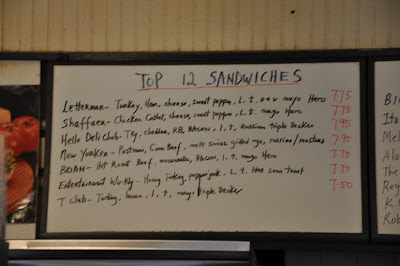 TOP 12 SANDWICHES
Letterman - Turkey, Ham, cheese, sweet peppers, L, t, mayo Hero 7.75
Shaffaer - Chicken Cutlet, cheese, sweet peppers, L, t, mayo Hero 7.75
Hello Deli Club - Tky, cheddar, RB, Bacon, l, t, Russian triple Decker 7.95
New Yorker - Pastrami, Corn Beef, melt swiss grilled rye, russian/mustard 7.95
BRIAN - Hot Roast Beef, mozzarella, Bacon, l, t, mayo Hero 7.75
Entertainment Weekly - Honey Turkey, pepper jack, L, t, Hon 7.75
T club - Turkey, bacon, l, t, mayo, triple Decker 7.50
B
Ita
Me
Alo
The
Reg
K.
Rob